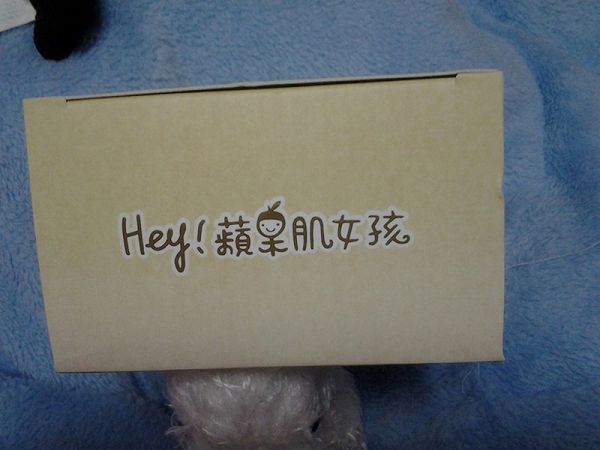 Hey!蘋果肌女孩